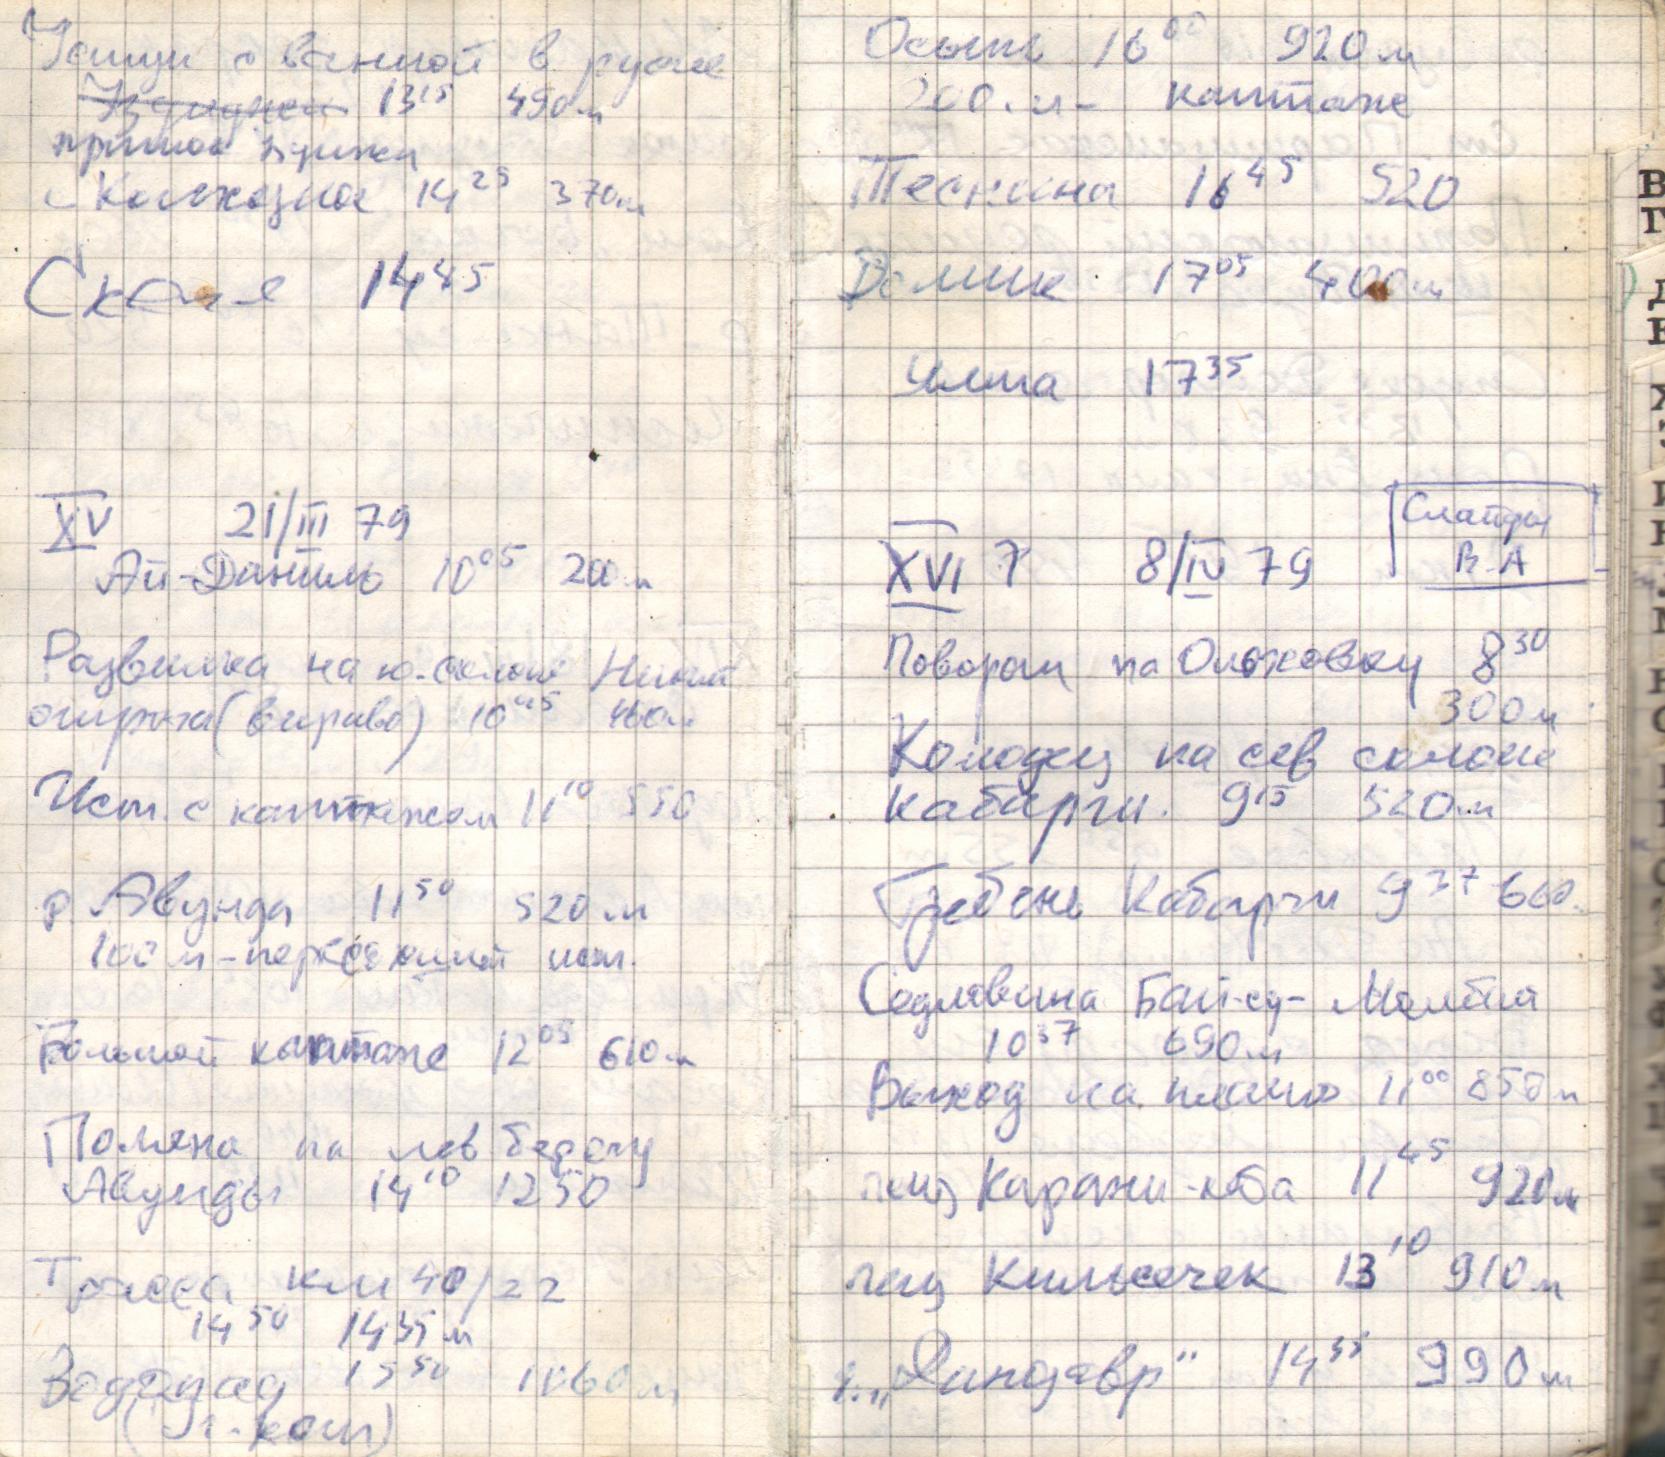 с ванной в русле
13¹⁵ 490 м
приток
Колхозное 14²⁵ 370 м
Скала 14⁴⁵
XV 21/III 79
Ай-Даниль 10⁰⁵ 200 м
Развилка на ю. склоне
(вправо) 10⁴⁵ 460 м
Ист. с каптажем 11¹⁰ 550
р. Авунда 11⁵⁰ 520 м
100 м - ист.
Большой каптаж 12⁰⁵ 610 м
Поляна на лев берегу
Авунды 14¹⁰ 1250
Трасса км 40/22
14⁵⁰ 1435 м
Водопад 15⁵⁰ 1060 м
Осыпь 16⁰⁰ 920 м
200 м - каптаж
Теснина 16⁴⁵ 520
Домик 17⁰⁵ 400 м
Ялта 17³⁵
Слайды
В.А
XVI 7 8/IV 79
Поворот на Ольховку 8³⁰
300 м
Колодец на сев склоне
Кабарги. 9¹⁵ 520 м
Гребень Кабарги 9³⁷ 660
Седловина Бай-су- Молбай
10³⁷ 690 м
Выход на плато 11⁰⁰ 850 м
пещ Карани-коба 11⁴⁵ 920 м
пещ Кильсечек 13¹⁰ 910 м
"Динозавр" 14³⁵ 990 м